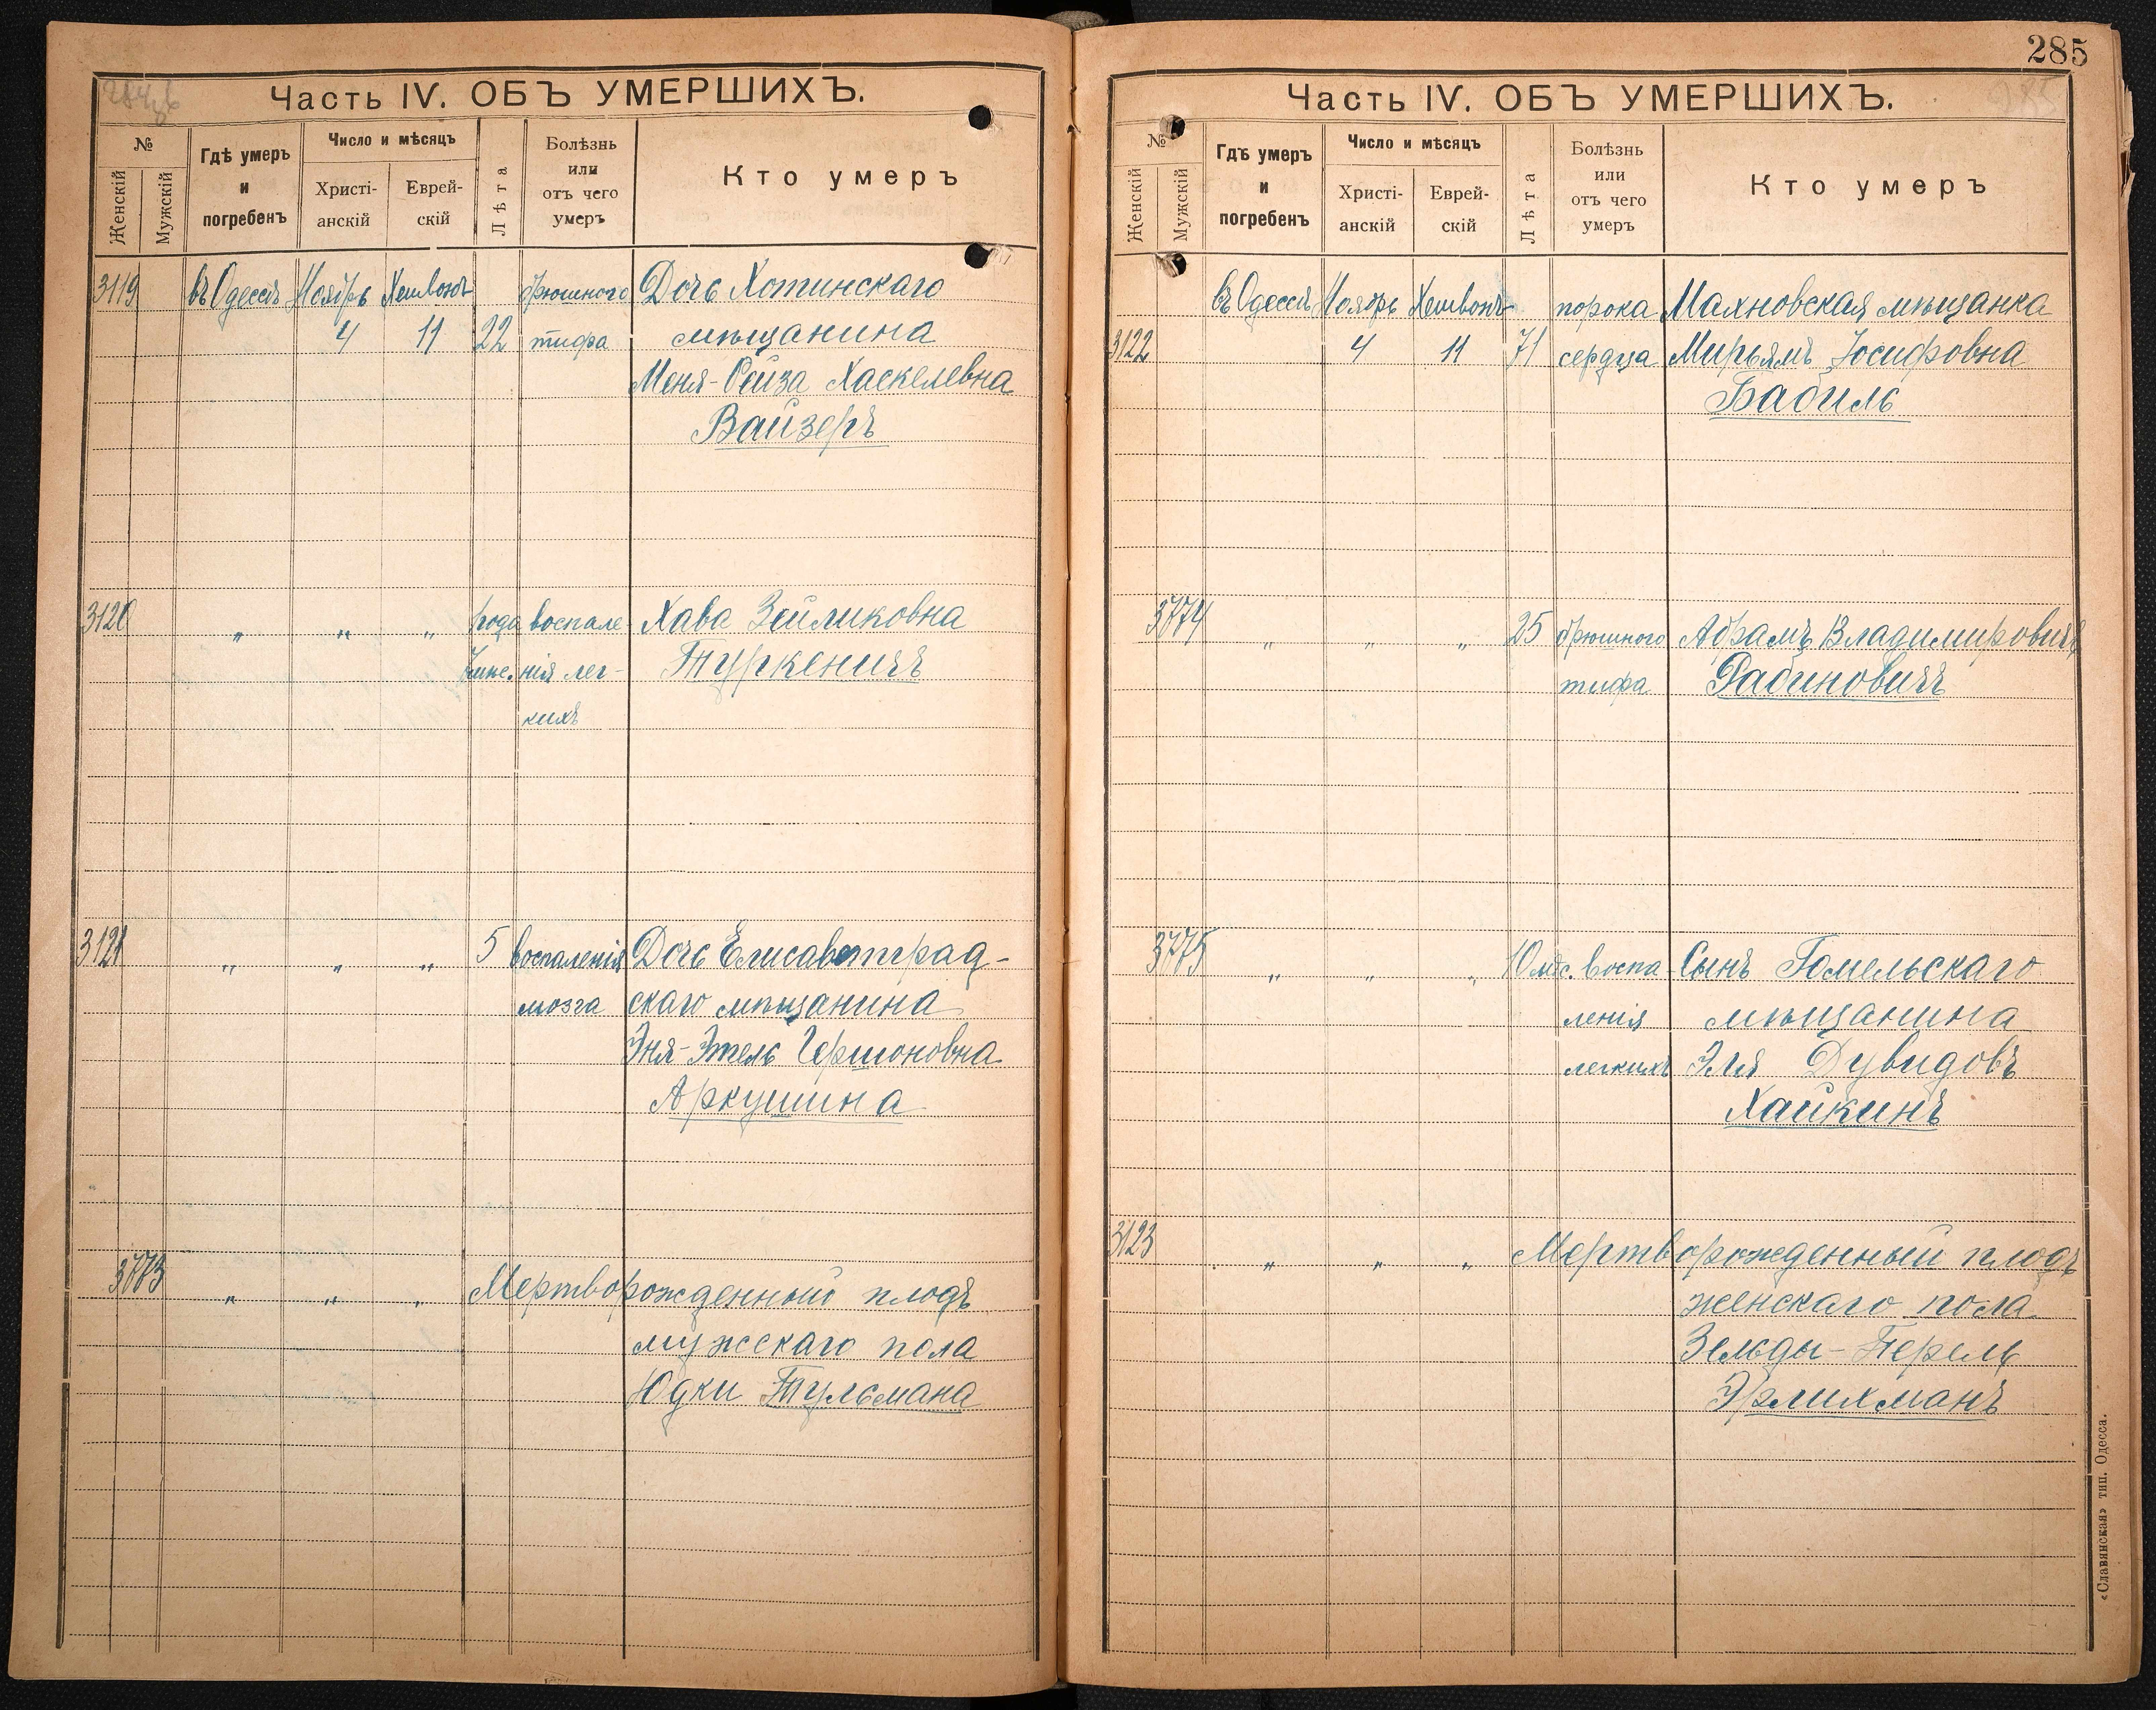 Часть IV. ОБЪ УМЕРШИХЪ.
№
Женскій
Мужскій
Гдѣ умеръ
и
погребенъ
Число и мѣсяцъ
Христі-
анскій
Еврей-
скій
Лѣта
Болѣзнь
или
отъ чего
умеръ
Кто умеръ
3119 въ Одессѣ Ноябрь Хешвонъ брюшного Дочь Хотинскаго
4 11 22 тифа мѣщанина
Меня-Рейза Хаскелевна
Вайзеръ
3120 „ „ „ года воспале- Хава Зейликовна
нія лег- Туркеничъ
кихъ
3121 „ „ „ 5 воспаленія Дочь Елисаветград-
мозга скаго мѣщанина
Эня-Этель Гершоновна
Аркушина
3773 „ „ „ Мертворожденный плодъ
мужскаго пола
Юдки Тульсмана
285
Часть IV. ОБЪ УМЕРШИХЪ.
№
Женскій
Мужскій
Гдѣ умеръ
и
погребенъ
Число и мѣсяцъ
Христі-
анскій
Еврей-
скій
Лѣта
Болѣзнь
или
отъ чего
умеръ
Кто умеръ
въ Одессѣ Ноябрь Хешвонъ порока Махновская мѣщанка
3122 4 11 71 сердца Мирьямъ Іосифовна
Бабиль
3774 „ „ „ 25 брюшного Абрамъ Владимировичъ
тифа Рабиновичъ
3775 „ „ „ 10 мѣс. воспа- Сынъ Гомельскаго
ленія мѣщанина
легкихъ Эля Дувидовъ
Хайкинъ
3123 „ „ „ Мертворожденный плодъ
женскаго пола
Зельды-Перель
Эрлихманъ
«Славянская» тип. Одесса.